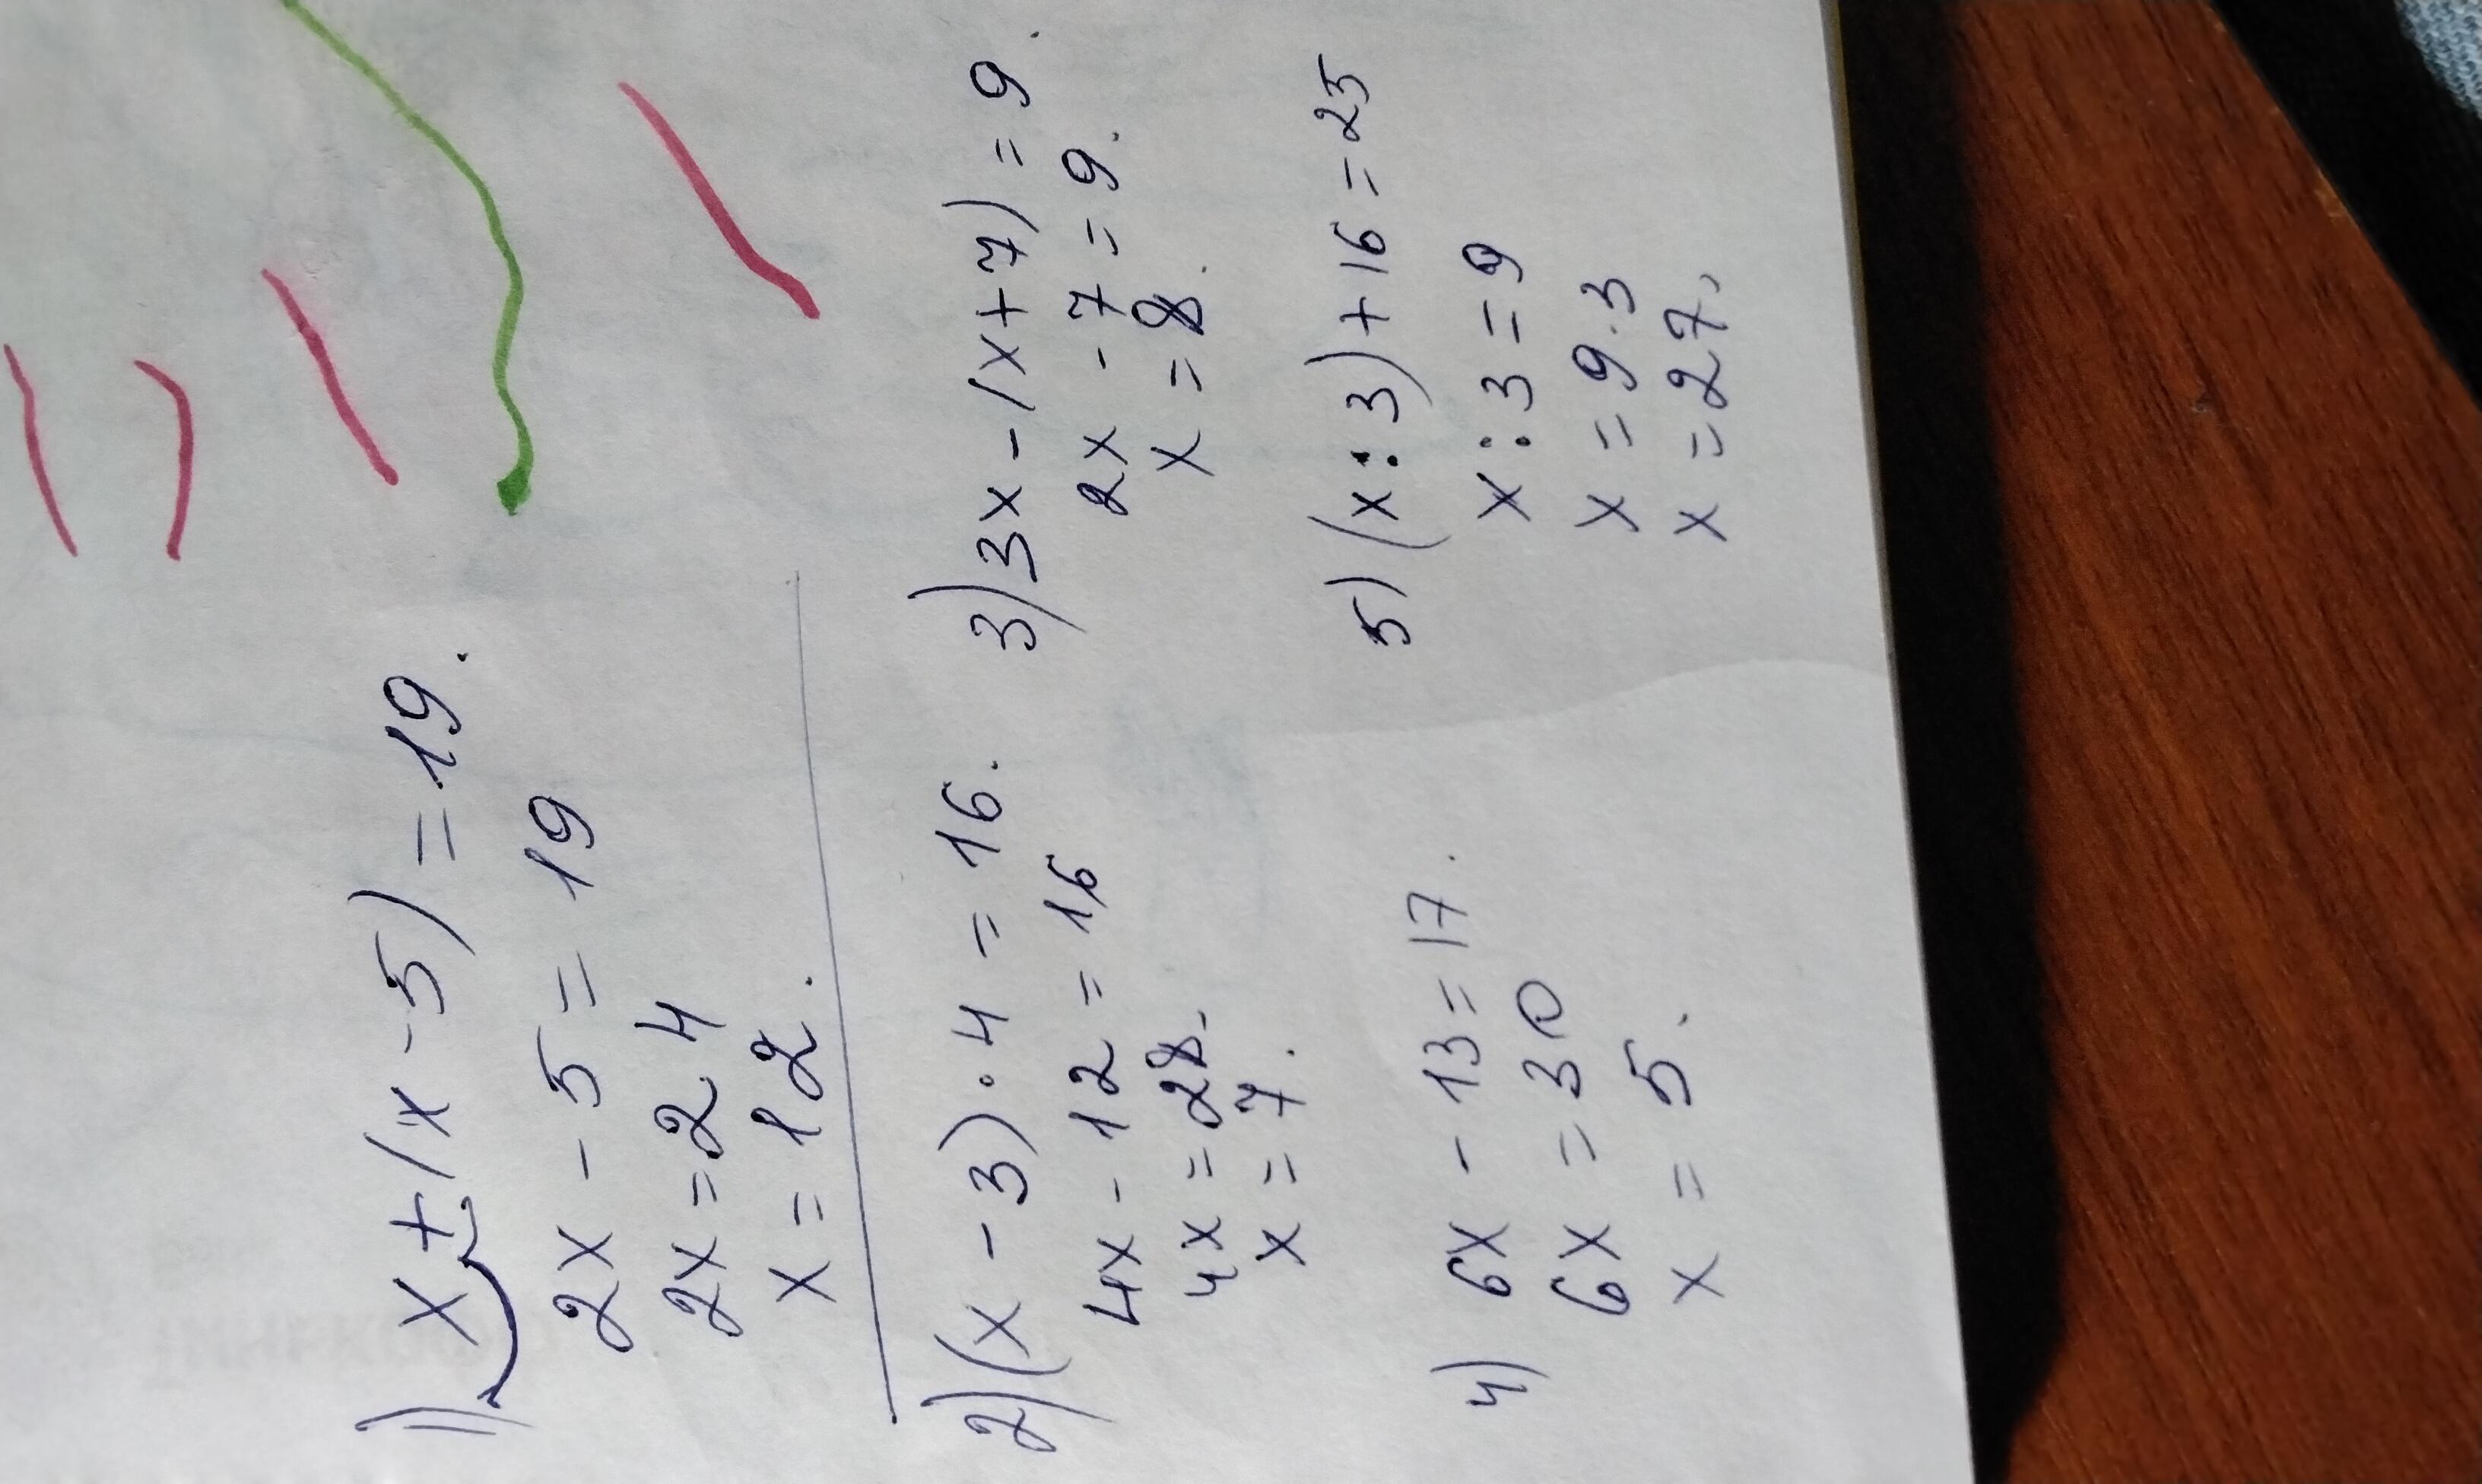 1) x + (x - 5) = 19.
2x - 5 = 19
2x = 24
x = 12.
2) (x - 3) · 4 = 16.
4x - 12 = 16
4x = 28.
x = 7.
3) 3x - (x + 7) = 9.
2x - 7 = 9.
x = 8.
4) 6x - 13 = 17.
6x = 30
x = 5.
5) (x : 3) + 16 = 25
x : 3 = 9
x = 9 · 3
x = 27.